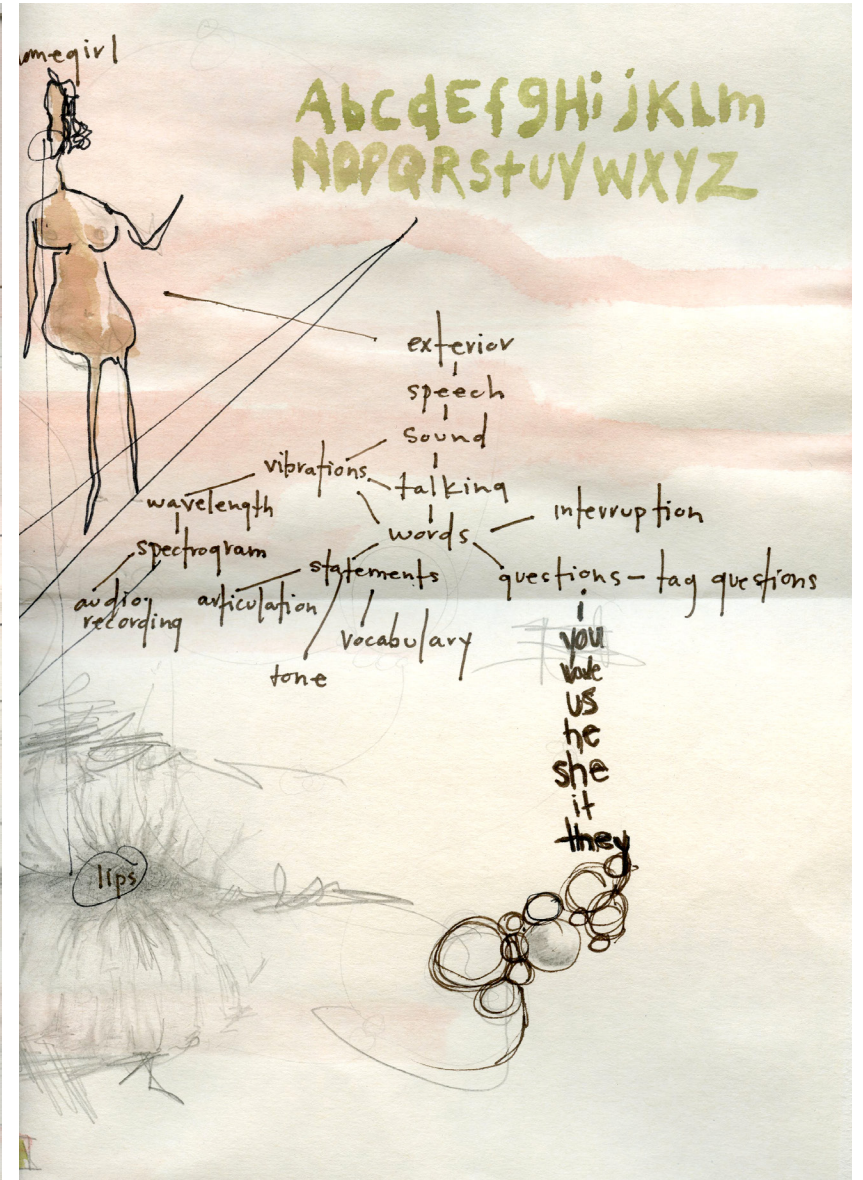 omegirl
AbcdEfgHijKLm
NOPQRStUVWXYZ
exterior
speech
sound
vibrations
talking
wavelength
words
interruption
spectrogram
statements
questions – tag questions
audio
recording
articulation
vocabulary
tone
i
you
us
he
she
it
they
lips